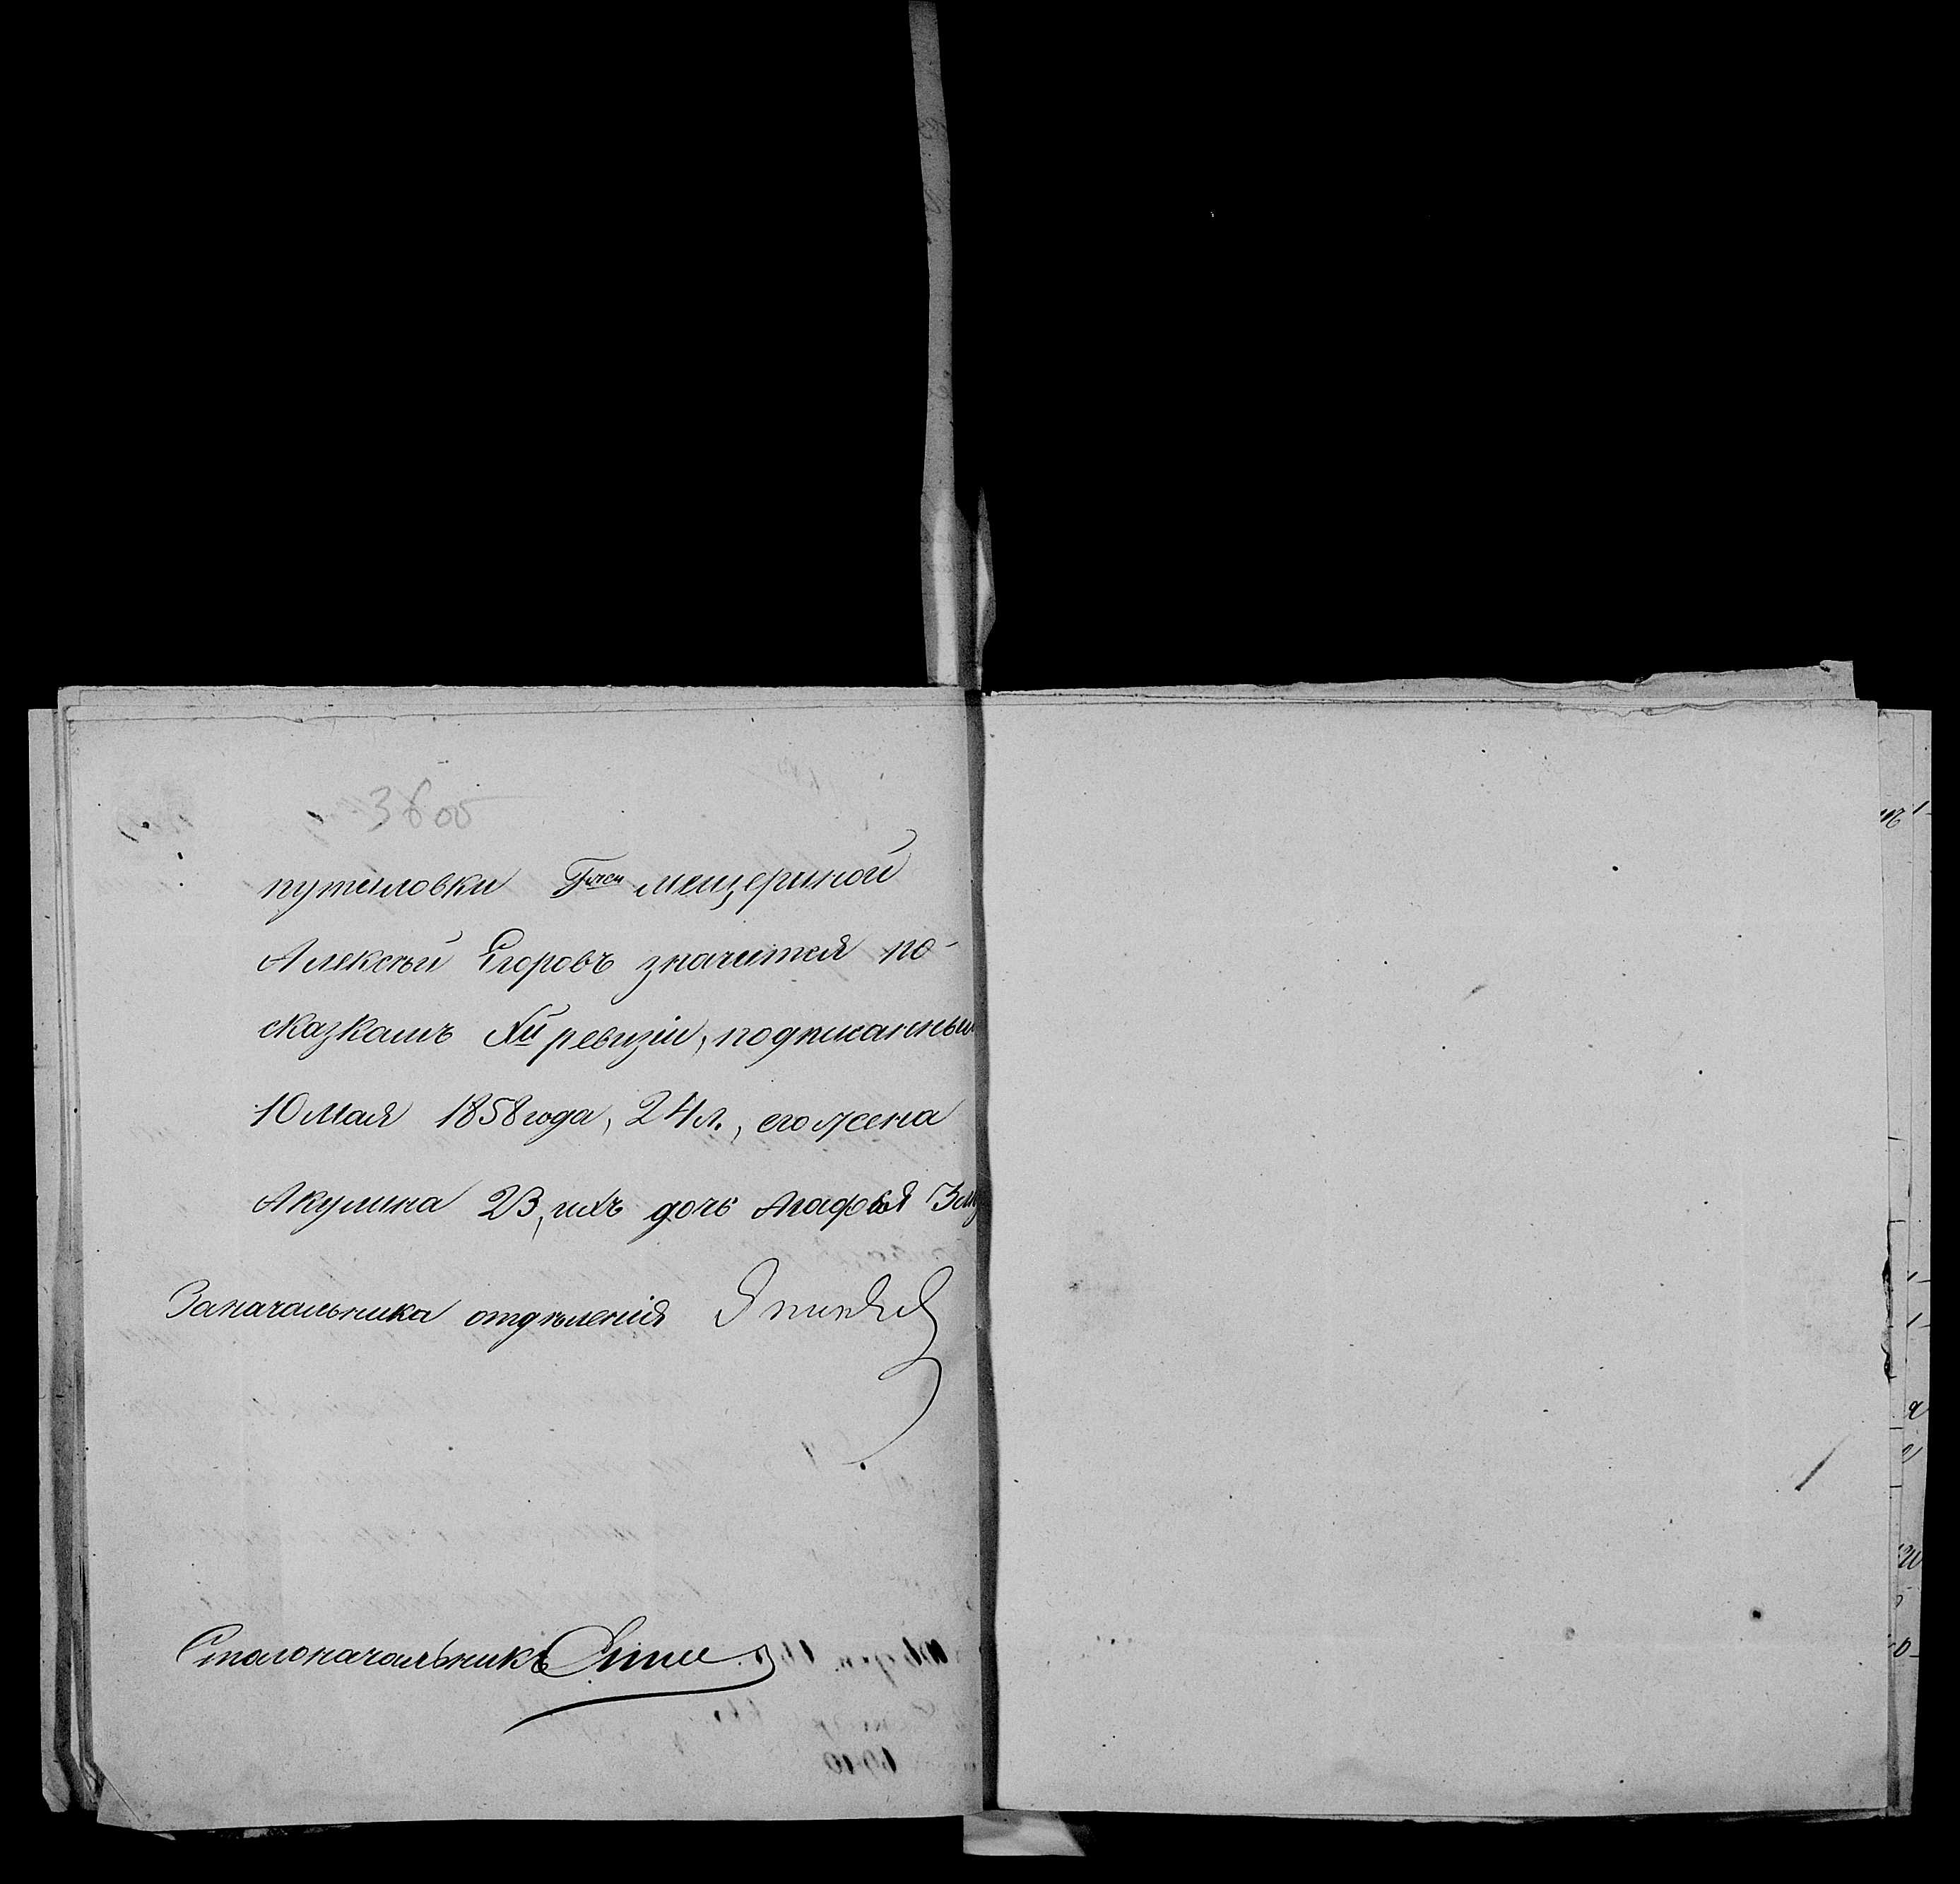 3600
путиловки Г-жи Мещериной
Алексѣй Егоровъ значится по
сказкамъ Xй ревизіи, подписаннымъ
10 Мая 1858 года, 24 л., его жена
Акулина 23, ихъ дочь Агафья 3
За начальника отдѣленія
Столоначальникъ